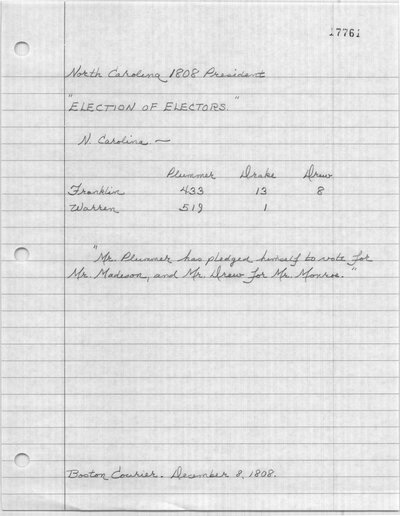 17761
North Carolina 1808 President
"ELECTION OF ELECTORS."
N. Carolina —
Plummer Drake Drew
Franklin 433 13 8
Warren 519 1
"Mr. Plummer has pledged himself to vote for
Mr. Madison, and Mr. Drew for Mr. Monroe."
Boston Courier. December 8, 1808.